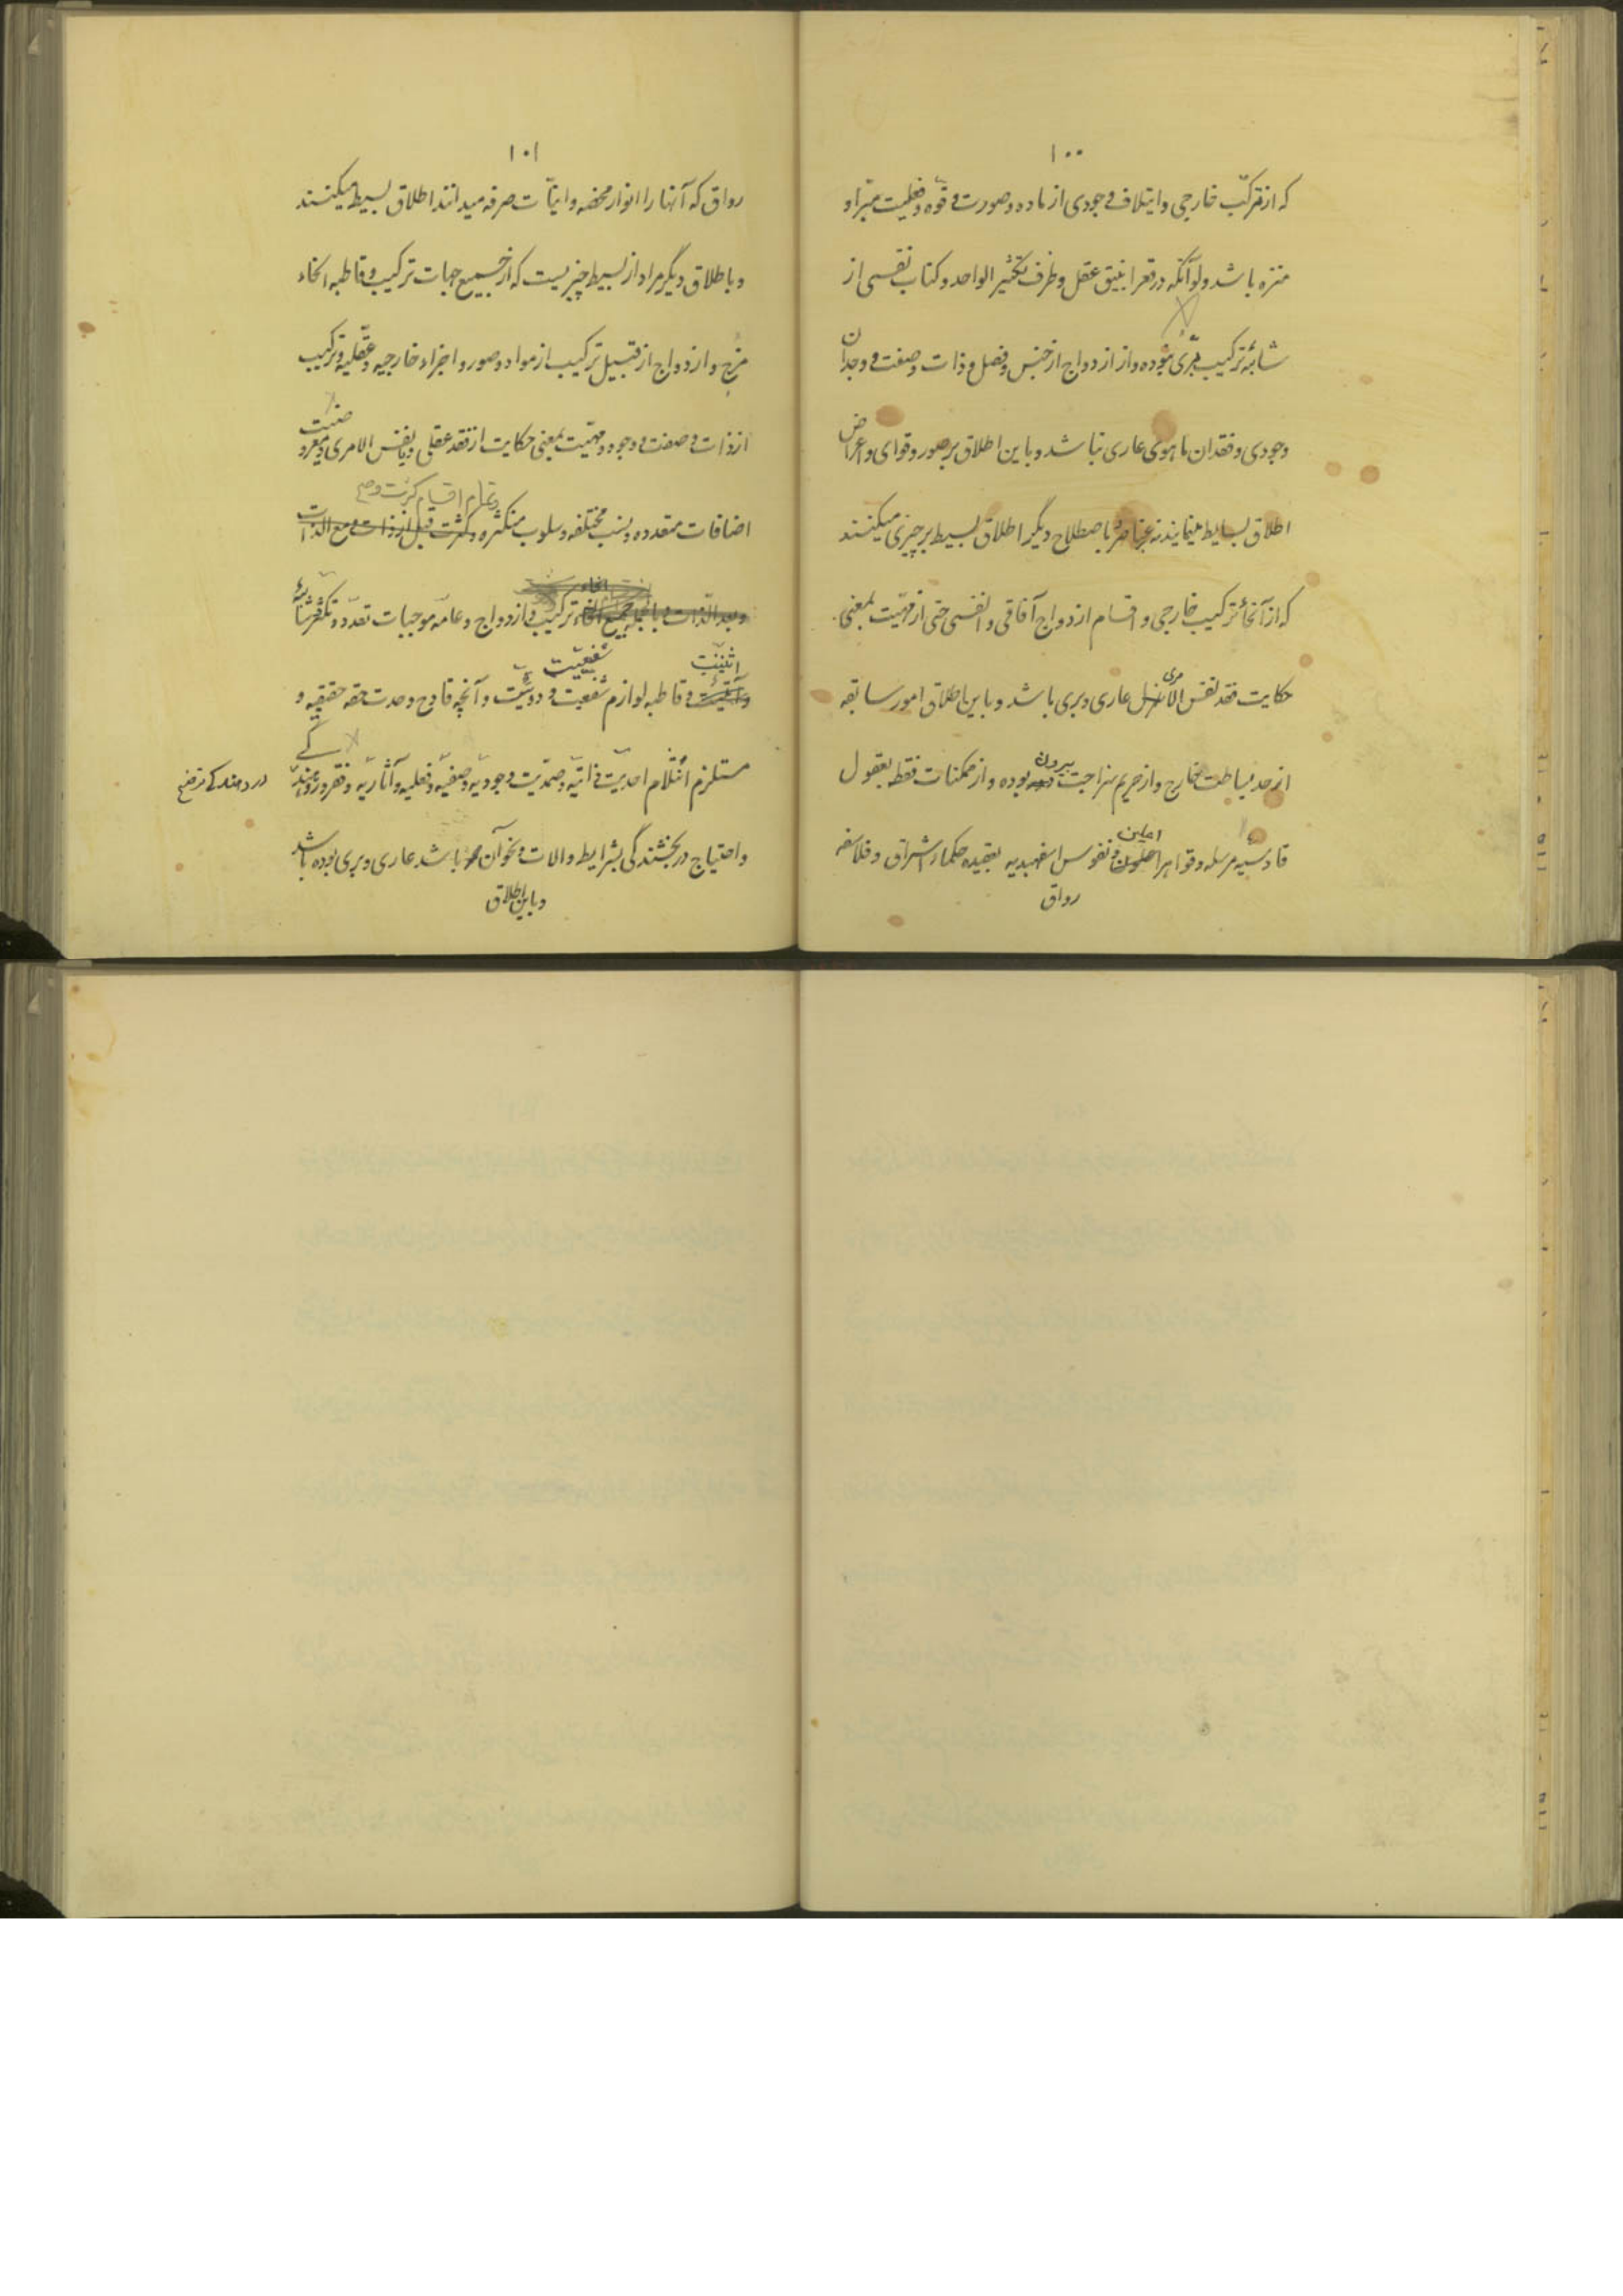 ۱۰۰
که از ترکب خارجی و ایتلاف وجودی از ماده و صورت و قوه و فعلیت مبرّا و
منزه باشد ولو آنکه در قعر انبیق عقل و ظرف تکثیر الواحد و کتاب نفسی از
شائبه ترکیب بری نبوده و از ازدواج از جنس و فصل و ذات و صفت و وجدان
وجودی و فقدان ماهوی عاری نباشد و باین اطلاق بر صور و قوای و اعراض
اطلاق بسایط مینمایند نه عناصر و باصطلاح دیگر اطلاق بسیط بر چیزی میکنند
که از انحاء ترکیب خارجی و اقسام ازدواج آفاقی و انفسی حتی از مهیّت بمعنی
حکایت فقد نفس الامری عاری و بری باشد و باین اطلاق امور سابقه
از حد بساطت خارج و از حریم نزاهت بیرون بوده و از ممکنات فقط بعقول
قادسیّه مرسله و قواهر اعلین و نفوس اسفهبدیه بعقیده حکماء اشراق و فلاسفه
رواق
۱۰۱
رواق که آنها را انوار محضه و انیّات صرفه میدانند اطلاق بسیط میکنند
و باطلاق دیگر مراد از بسیط چیزیست که از جمیع جهات ترکیب و قاطبه انحاء
مزج و ازدواج از قبیل ترکیب از مواد و صور و اجزاء خارجیه و عقلیه و ترکیب
از ذات و صفت و وجود و مهیّت بمعنی حکایت از فقد عقلی و یا نفس الامری و
اضافات متعدده و نسب مختلفه و سلوب متکثره و کثرت قبل از ذات و مع الذات
و تمام اقسام کثرت و
و بعد الذات و بالجمله جمیع انحاء ترکیب و ازدواج و عامه موجبات تعدّد و تکثر
اثنینیت و قاطبه لوازم شفعیّت و دوئیّت و آنچه قادح وحدت حقه حقیقیه و
مستلزم انثلام احدیّت ذاتیّه و صمدیّت وجودیّه و صفتیّه و فعلیه و آثاریّه و فقر و
و احتیاج در بخشندگی بشرایط و الات و نحو آن باشد عاری و بری بوده باشد
و باین اطلاق